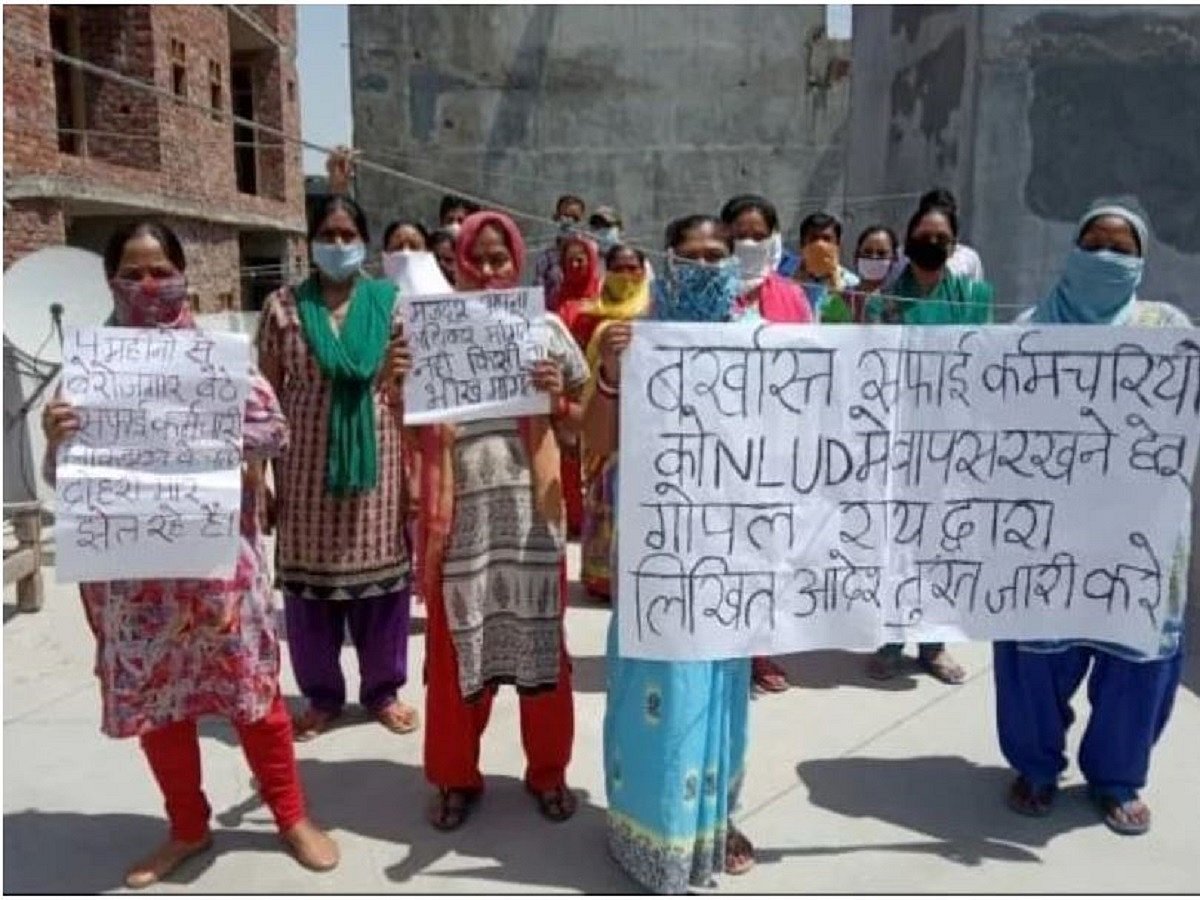 4 महीनों से
बेरोजगार बैठे
सफाई कर्मचारी
दोहरी मार
झेल रहे हैं।
मजदूर अपना
अधिकार मांगते
नही किसी से
भीख मांगते
बर्खास्त सफाई कर्मचारियों
को NLUD मे वापस रखने हेतु
गोपल राय द्वारा
लिखित आदेश तुरंत जारी करे